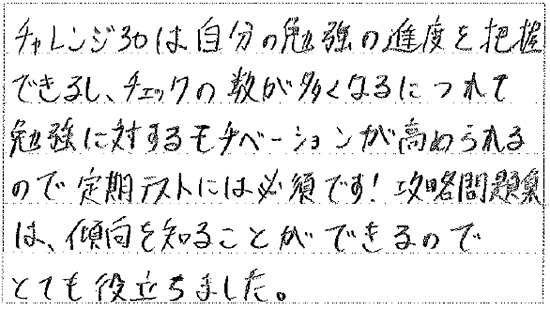 チャレンジ30は自分の勉強の進度を把握
できるし、チェックの数が多くなるにつれて
勉強に対するモチベーションが高められる
ので定期テストには必須です！攻略問題集
は、傾向を知ることができるので
とても役立ちました。